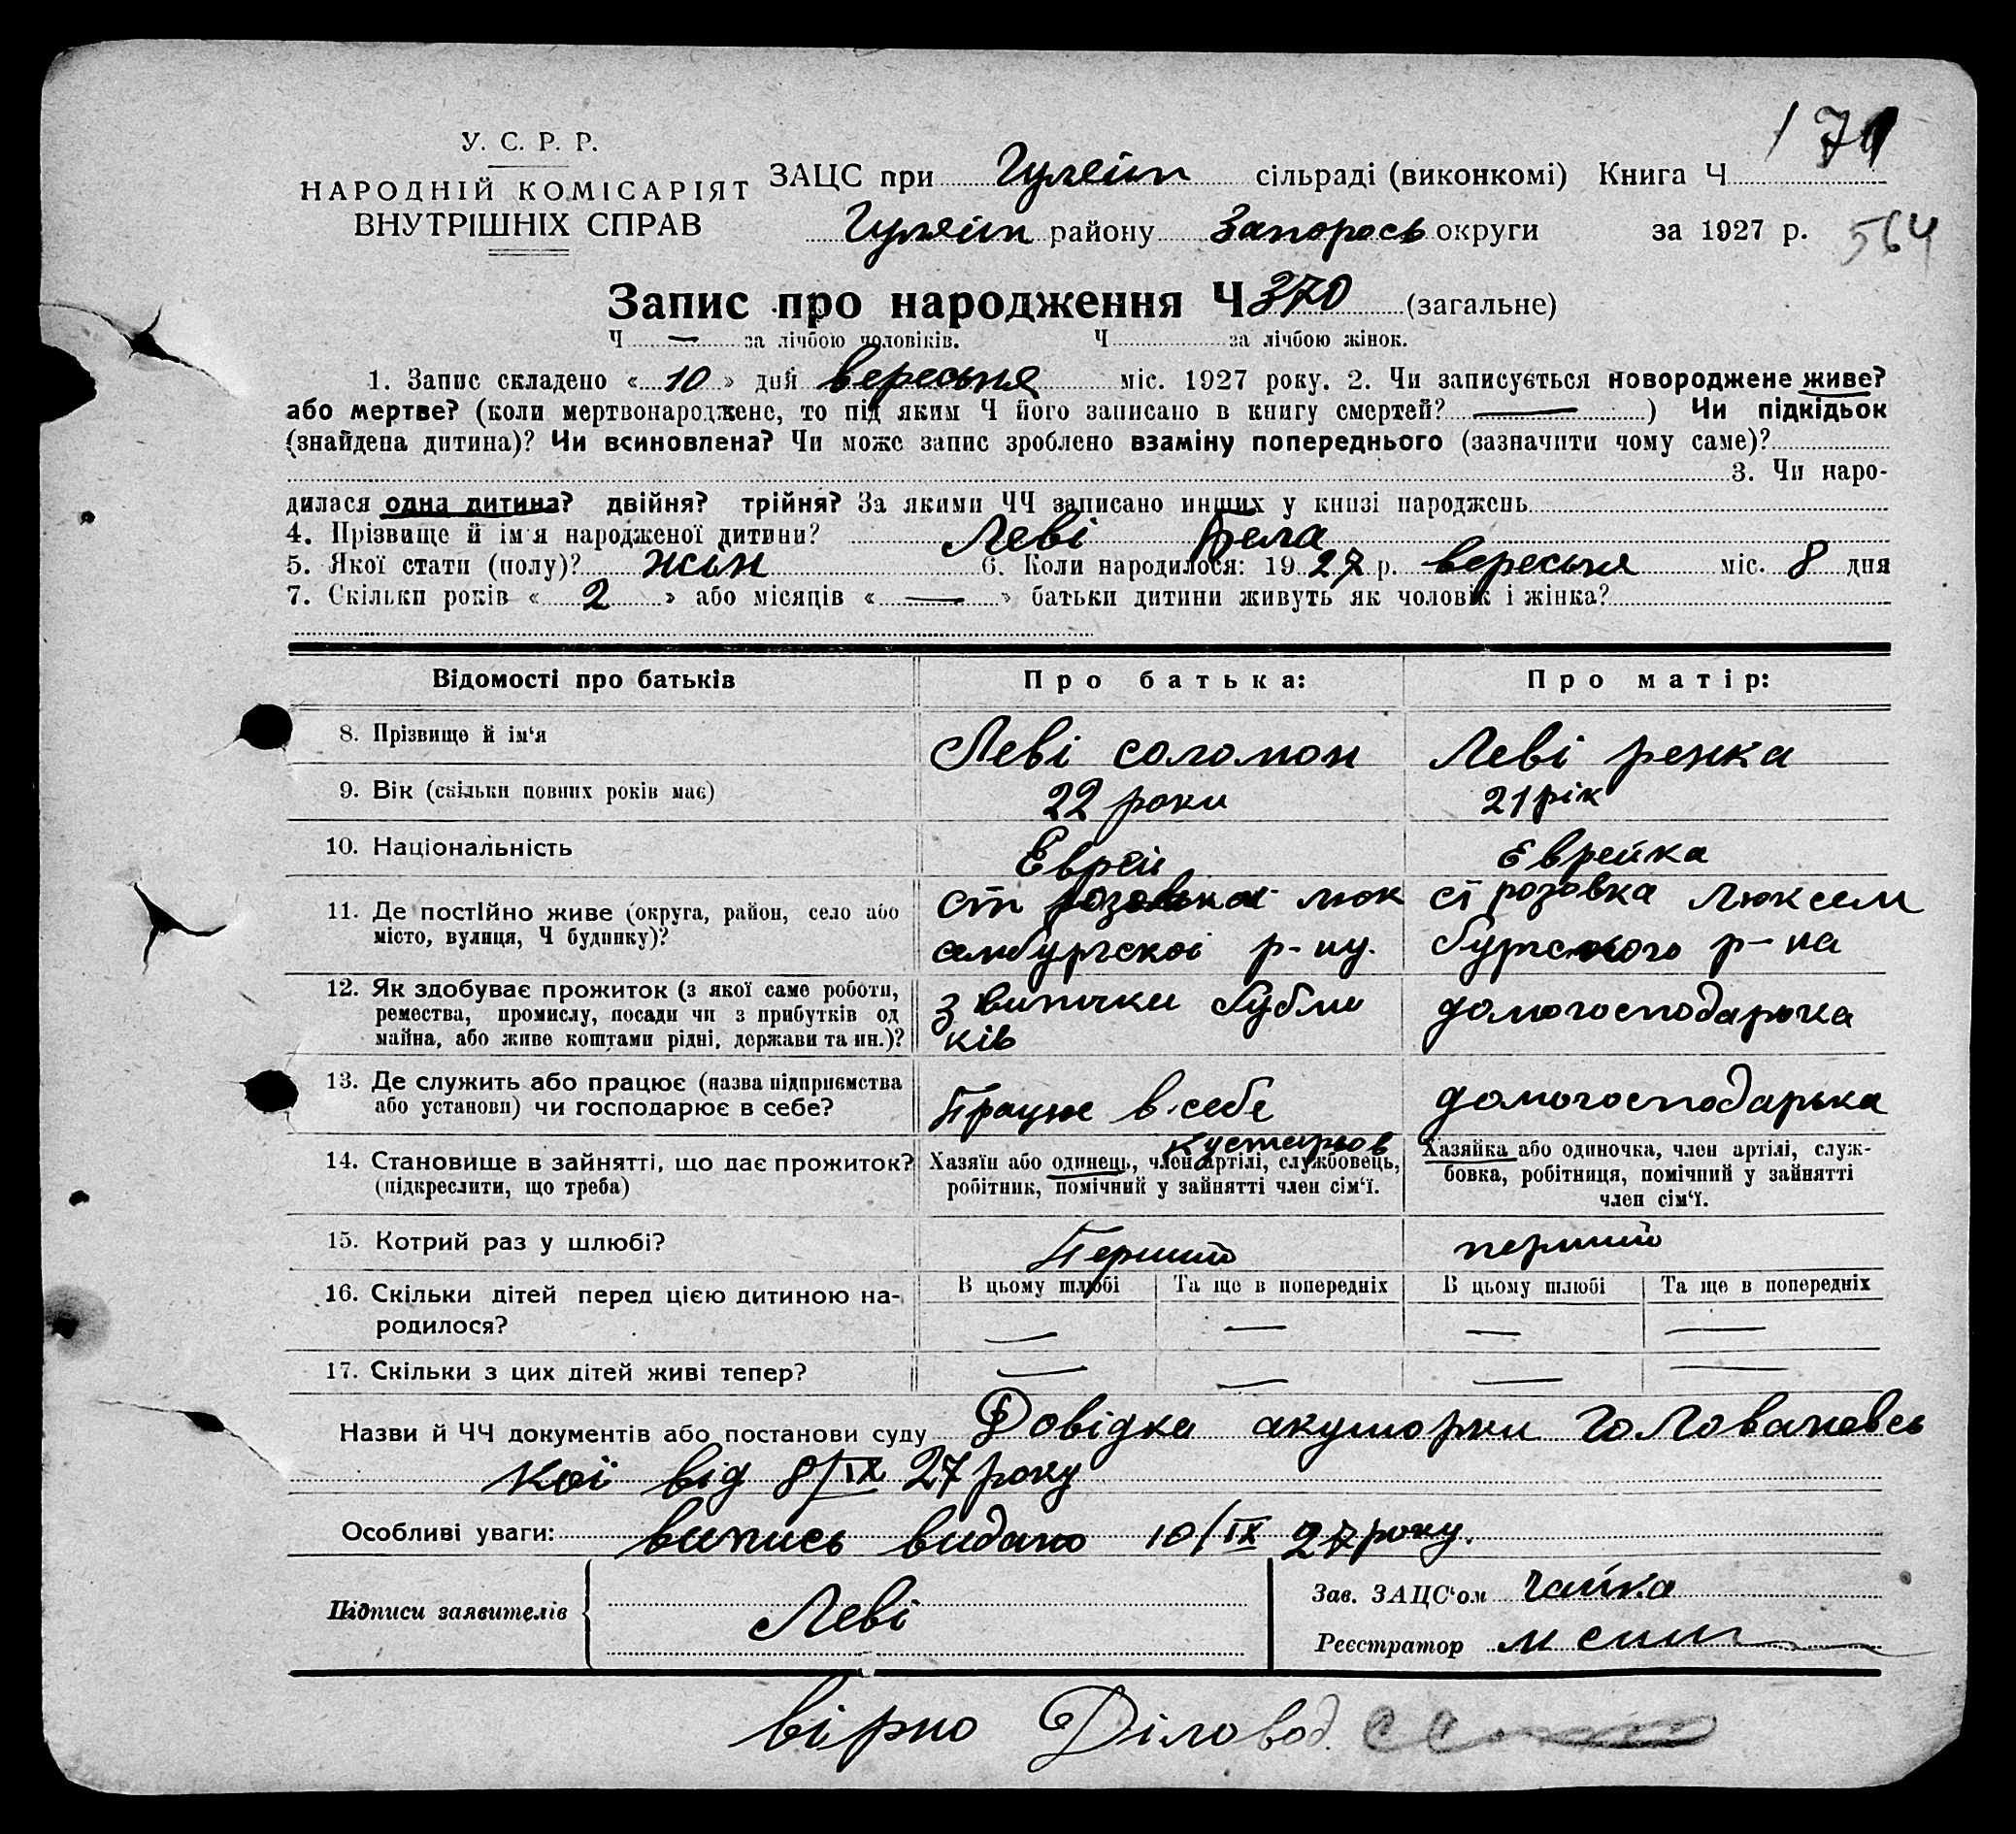 171
564
У. С. Р. Р.
НАРОДНІЙ КОМІСАРІЯТ
ВНУТРІШНІХ СПРАВ
ЗАЦС при Гуляйп сільраді (виконкомі) Книга Ч
Гуляйп району Запорось округи за 1927 р.
Запис про народження Ч 370 (загальне)
Ч — за лічбою чоловіків. Ч за лічбою жінок.
1. Запис складено « 10 » дня вересня міс. 1927 року. 2. Чи записується новороджене живе?
або мертве? (коли мертвонароджене, то під яким Ч його записано в книгу смертей? — ) Чи підкідьок
(знайдена дитина)? Чи всиновлена? Чи може запис зроблено взаміну попереднього (зазначити чому саме)?
3. Чи наро-
дилася одна дитина? двійня? трійня? За якими ЧЧ записано инших у книзі народжень
4. Прізвище й ім'я народженої дитини? Леві Бела
5. Якої стати (полу)? жін 6. Коли народилося: 1927 р. вересня міс. 8 дня
7. Скільки років « 2 » або місяців « — » батьки дитини живуть як чоловік і жінка?
Відомості про батьків Про батька: Про матір:
8. Прізвище й ім'я Леві соломон Леві ренка
9. Вік (скільки повних років має) 22 роки 21 рік
10. Національність Еврей Еврейка
11. Де постійно живе (округа, район, село або ст розовка люк ст розовка Люксем
місто, вулиця, Ч будинку)? сембургскоі р-ну. бургского р-на
12. Як здобуває прожиток (з якої саме роботи, з випички бубли домогосподарка
ремества, промислу, посади чи з прибутків од ків
майна, або живе коштами рідні, держави та ин.)?
13. Де служить або працює (назва підприємства Працює в себе домогосподарька
або установи) чи господарює в себе?
кустарьов
14. Становище в зайнятті, що дає прожиток? Хазяїн або одинець, член артілі, службовець, Хазяйка або одиночка, член артілі, служ-
(підкреслити, що треба) робітник, помічний у зайнятті член сім'ї. бовка, робітниця, помічний у зайнятті
член сім'ї.
15. Котрий раз у шлюбі? Перший перший
В цьому шлюбі Та ще в попередніх В цьому шлюбі Та ще в попередніх
16. Скільки дітей перед цією дитиною на- — — — —
родилося?
17. Скільки з цих дітей живі тепер? — — — —
Назви й ЧЧ документів або постанови суду Довідка акушорки Головановсь
кої від 8/IX 27 року
Особливі уваги: випись видано 10/IX 27 року.
Підписи заявителів Леві
Зав. ЗАЦС'ом Чайка
Реєстратор
вірно Діловод.